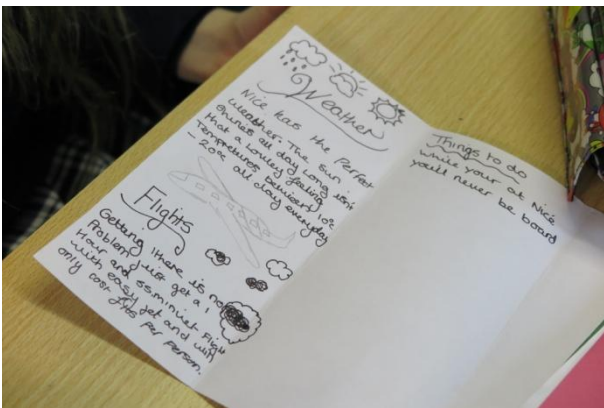 Weather
Nice has the Perfect
Weather. The sun
Shines all day long isn't
that a lovley feeling
Tempretures betwisrt 10°c
- 20°c all day everyday
Flights
Getting there is no
Problem Just get a 1
Hour and 55 miniuet Flight
with easy jet and will
only cost per person.
Things to do
while your at Nice
you'll never be board